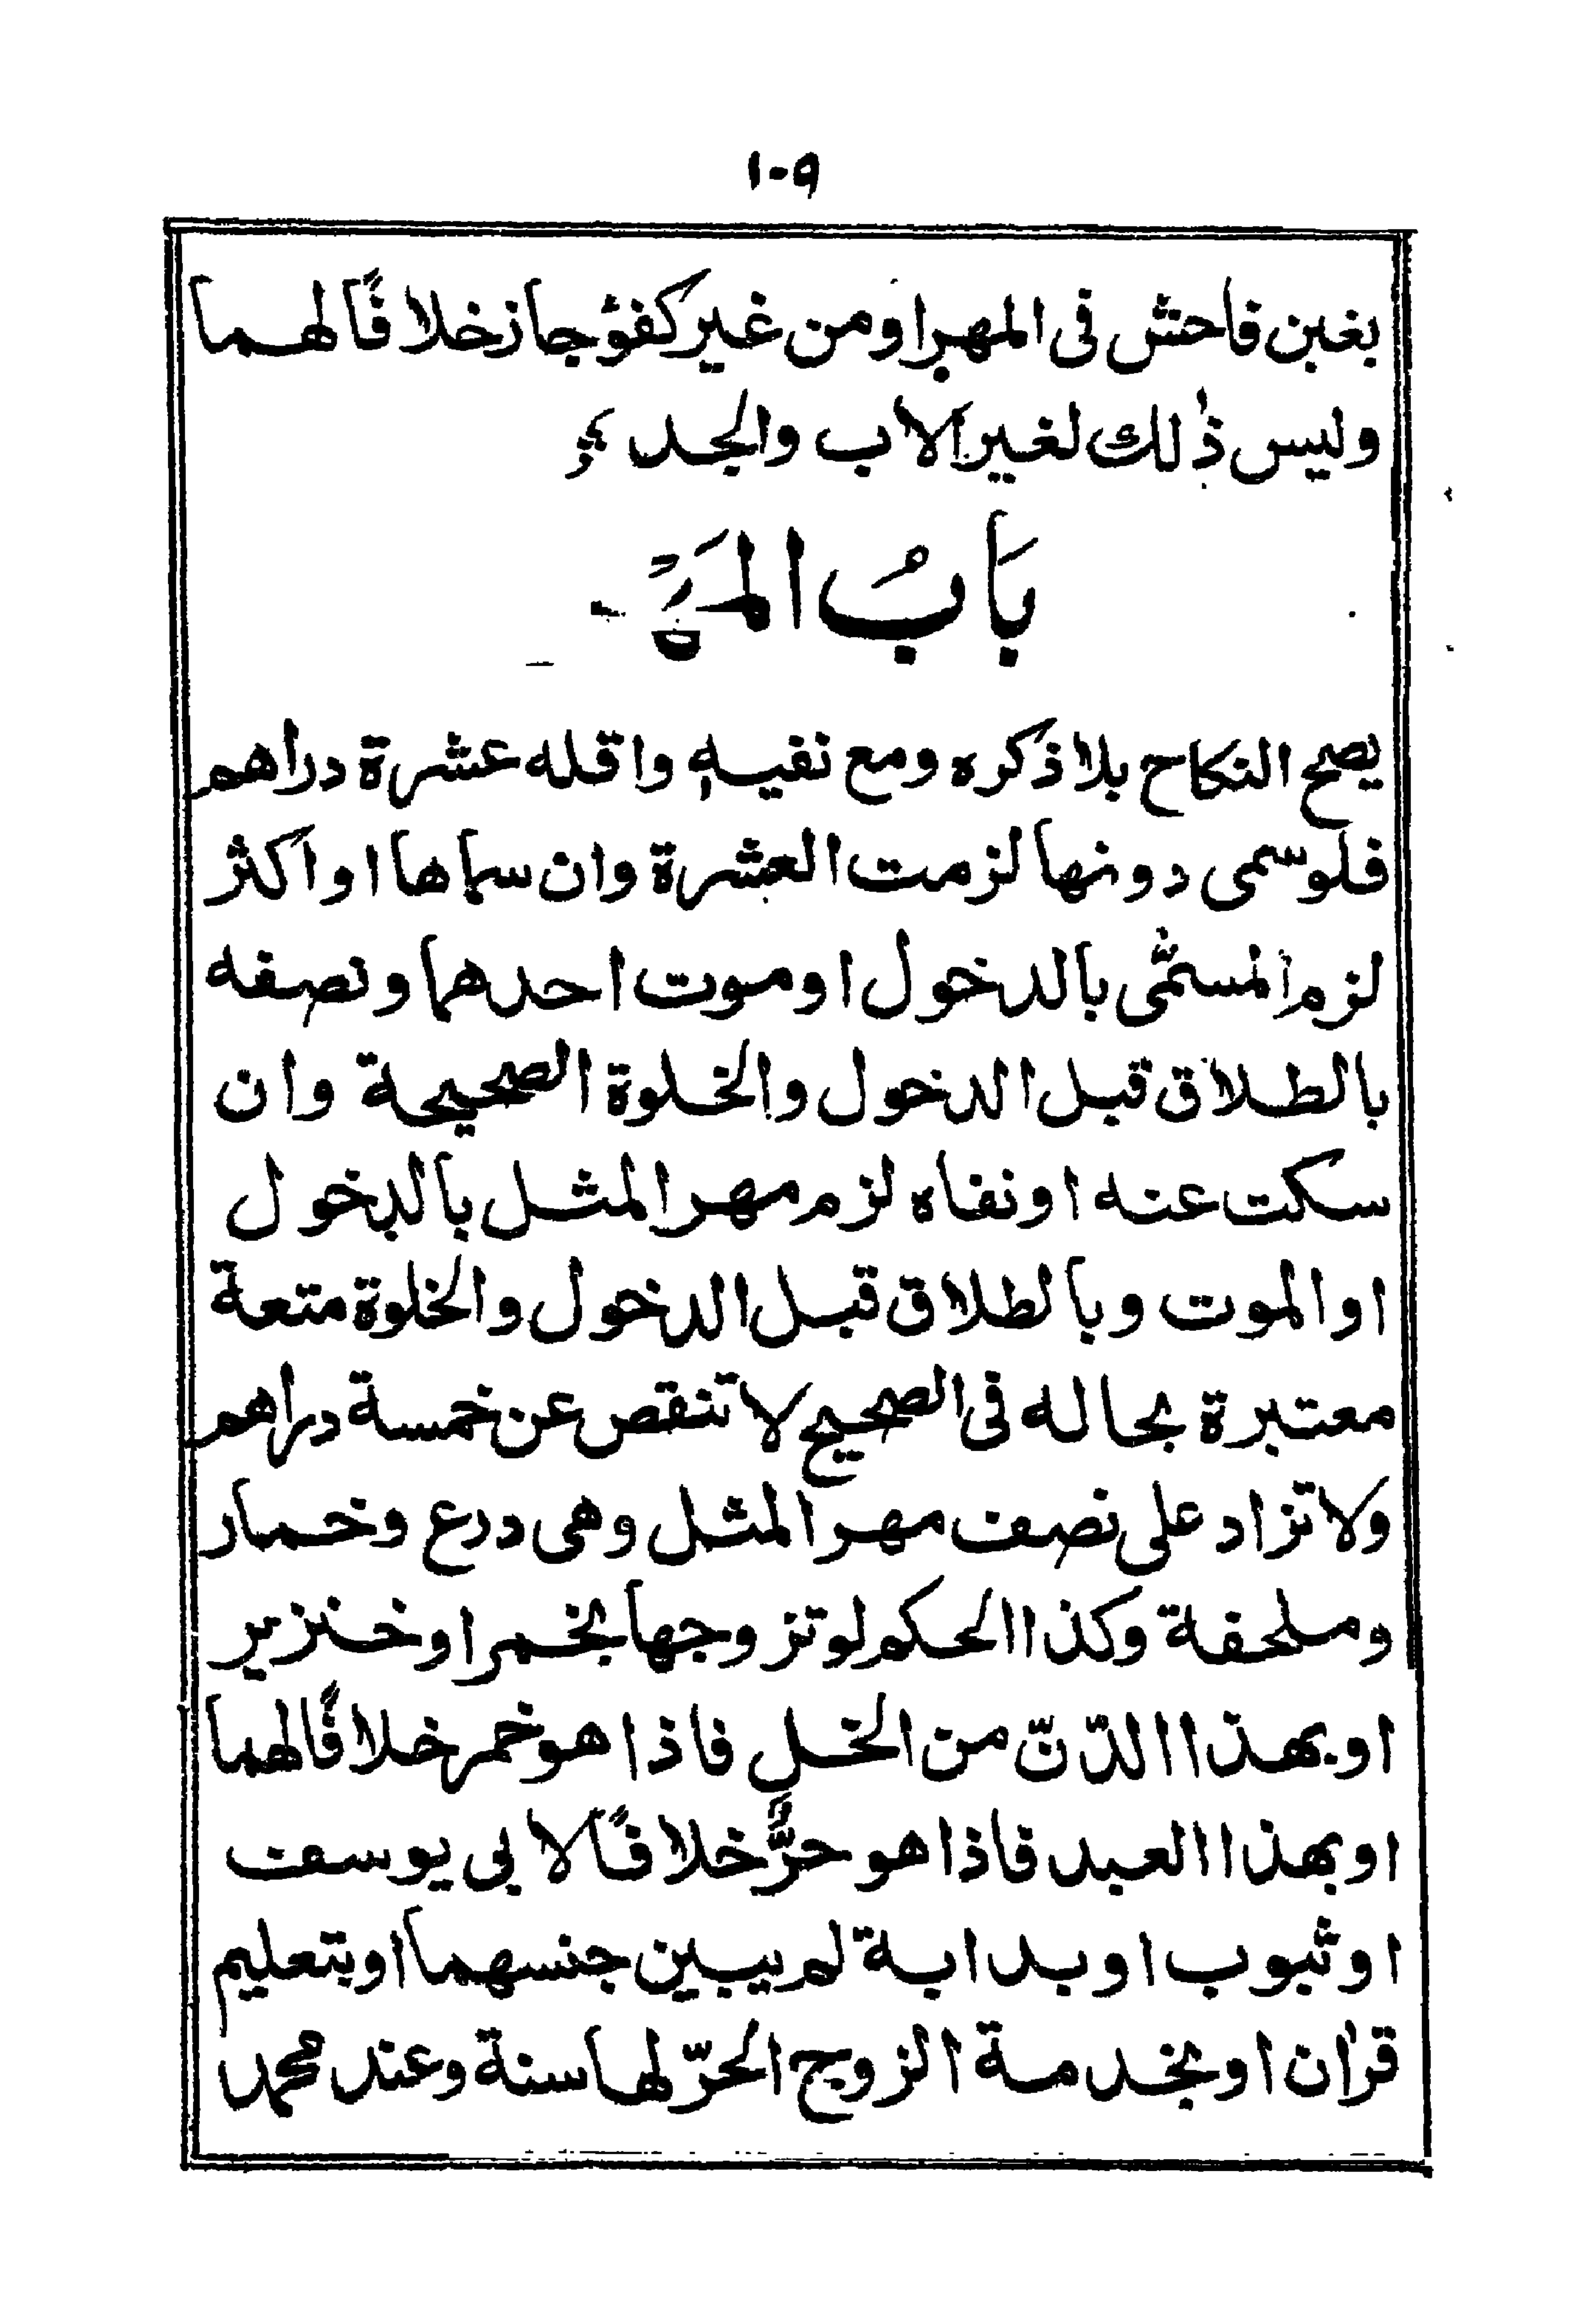 ١٠٩
بغبن فاحش فى المهر او من غير كفؤ جاز خلافًا لهما
وليس ذٰلك لغير الاب والجد
بَابُ المَهر
يصح النكاح بلا ذكره ومع نفيه واقله عشرة دراهم
فلو سمى دونها لزمت العشرة وان سماها او اكثر
لزم المسمّٰى بالدخول او موت احدهما ونصفه
بالطلاق قبل الدخول والخلوة الصحيحة وان
سكت عنه او نفاه لزم مهر المثل بالدخول
او الموت وبالطلاق قبل الدخول والخلوة متعة
معتبرة بحاله فى الصحيح لا تنقص عن خمسة دراهم
ولا تزاد على نصف مهر المثل وهى درع وخمار
وملحفة وكذا الحكم لو تزوجها بخمر او خنزير
او بهذا الدّنّ من الخل فاذا هو خمر خلافًا لهما
او بهذا العبد فاذا هو حرٌّ خلافًا لابى يوسف
او ثبوب او بدابة لم يبين جنسهما او بتعليم
قرٰان او بخدمة الزوج الحرّ لها سنة وعند محمد